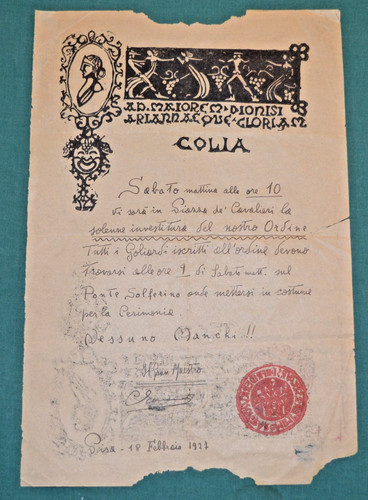 AD MAIOREM DIONISI
ARIANNAEQUE GLORIAM
GOLIA
Sabato mattina alle ore 10
vi sarà in Piazza de' Cavalieri la
solenne investitura del nostro Ordine
Tutti i Goliardi iscritti all'ordine devono
trovarsi alle ore 9 di Sabato matt. sul
Ponte Solferino onde mettersi in costume
per la Cerimonia
Nessuno Manchi!!
Il Gran Maestro
Pisa - 18 Febbraio 1927